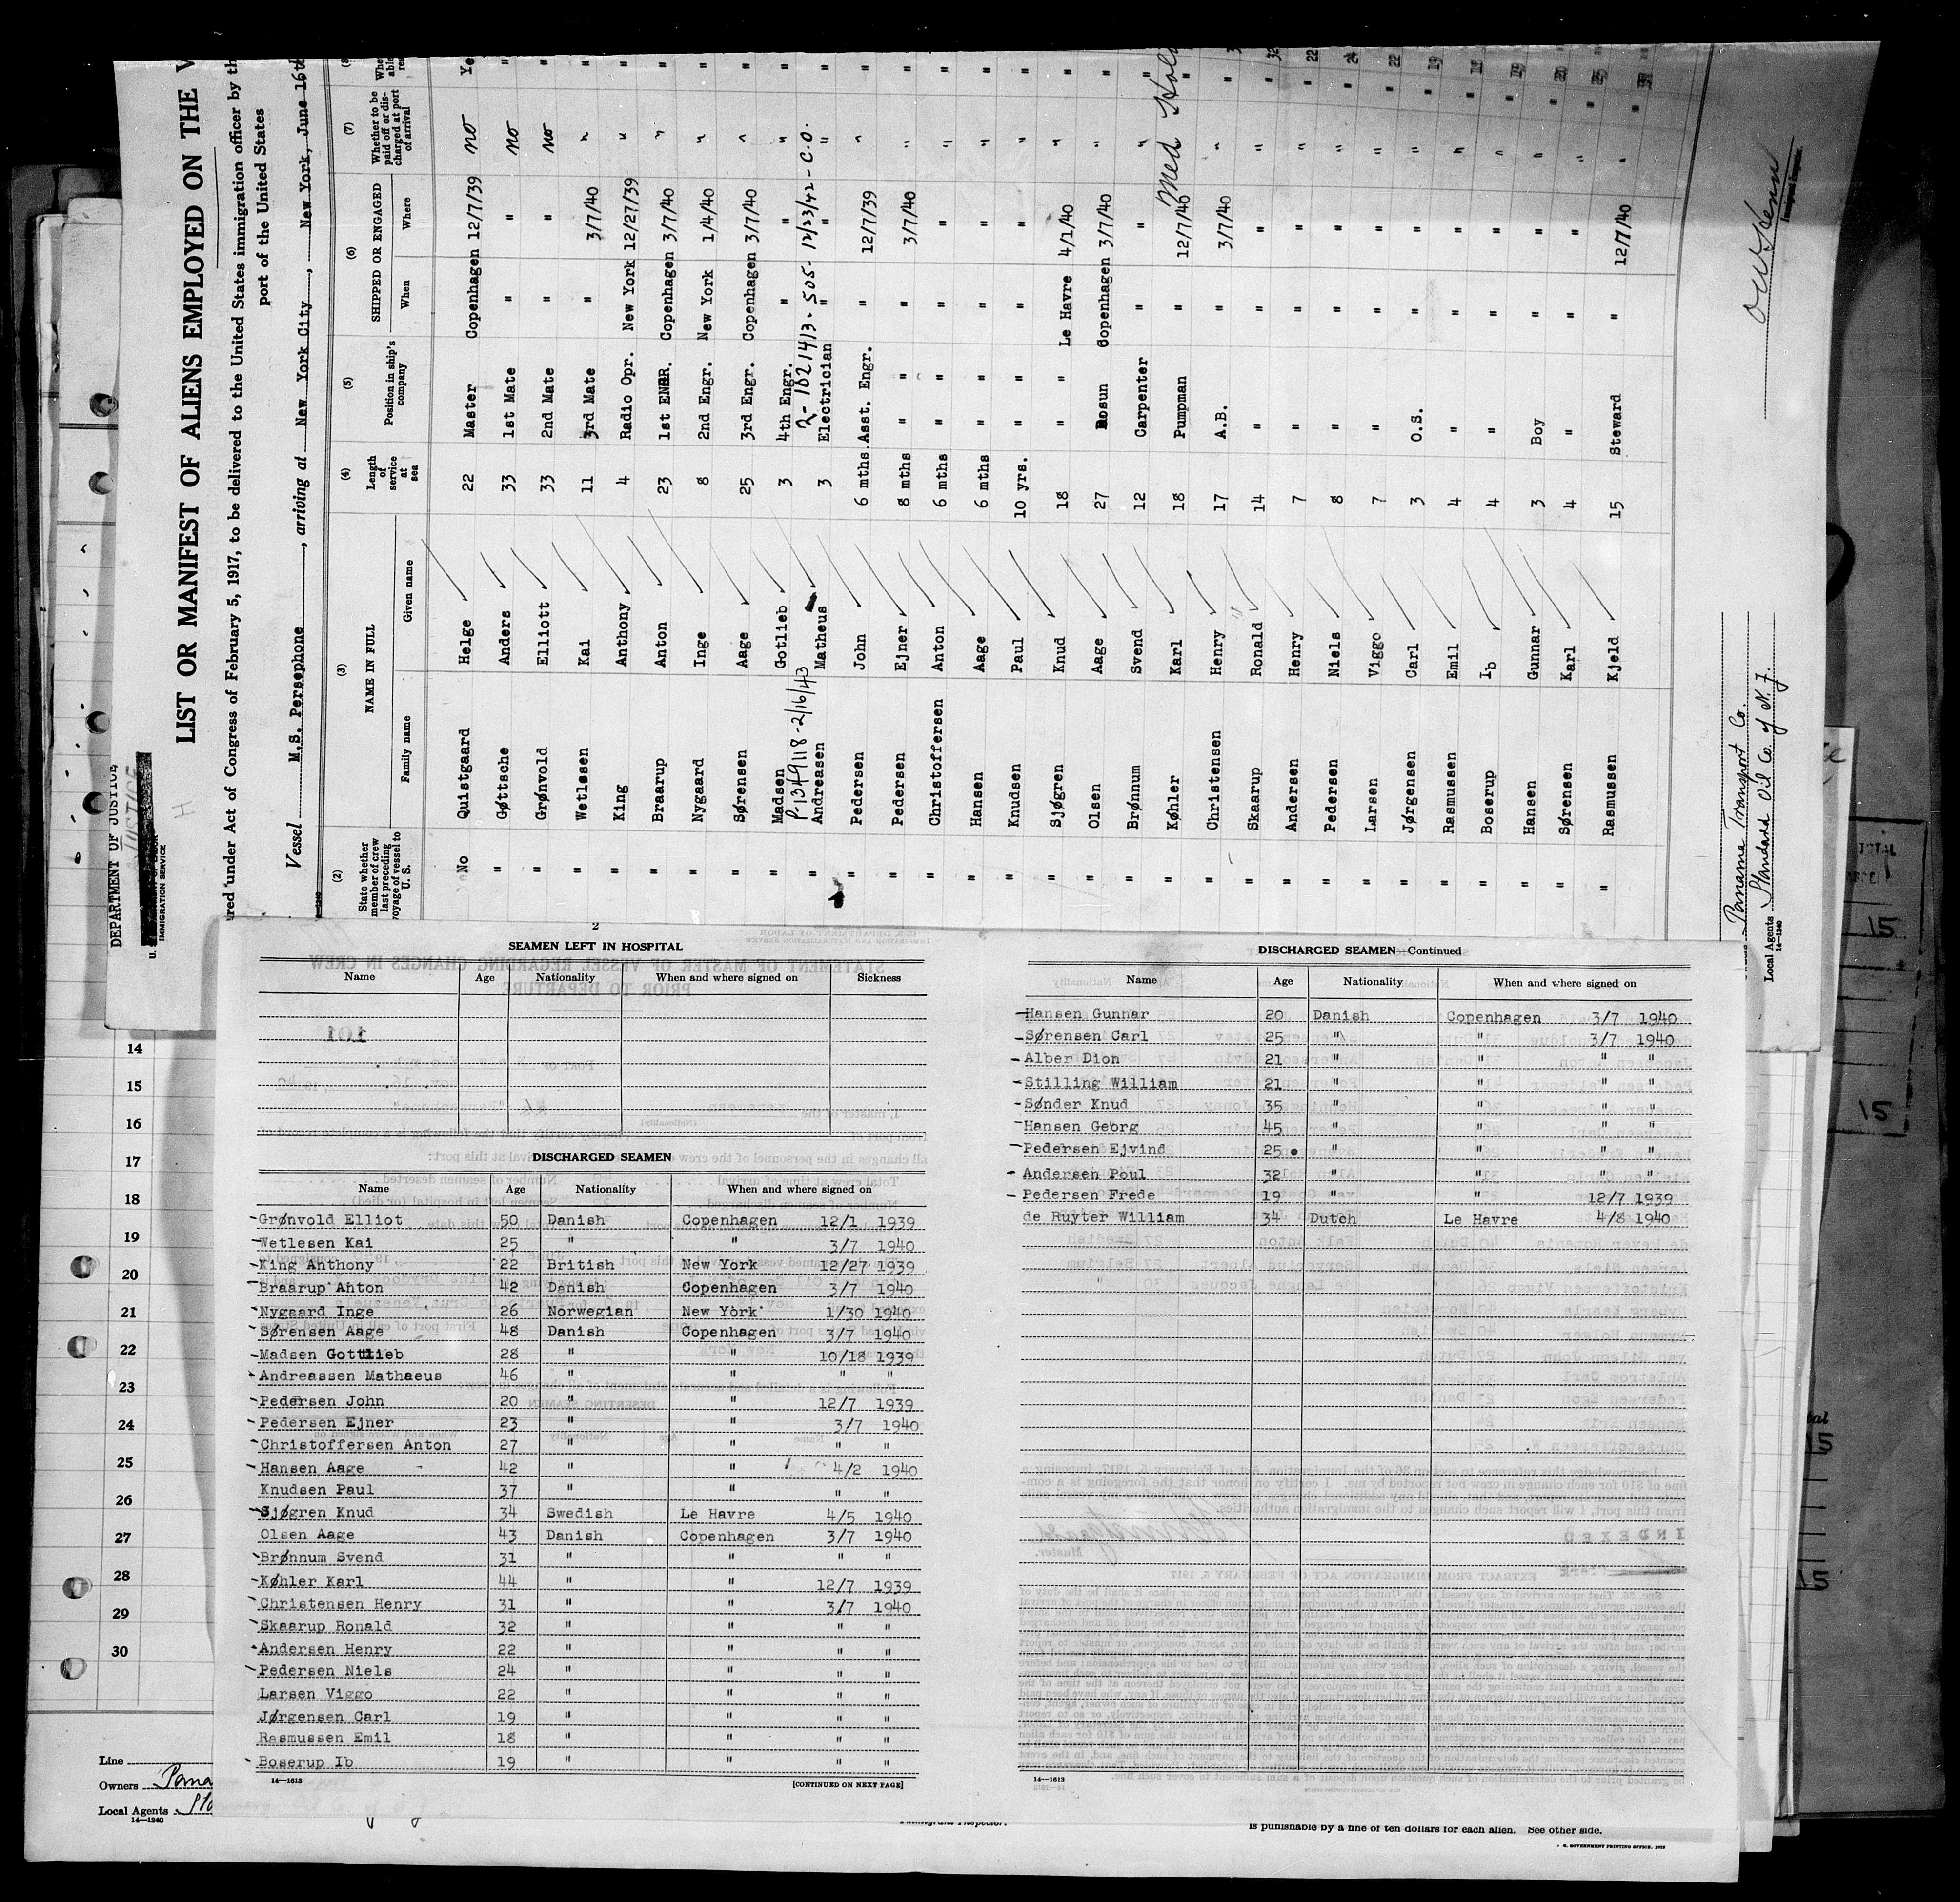 DEPARTMENT OF JUSTICE
IMMIGRATION SERVICE
LIST OR MANIFEST OF ALIENS EMPLOYED ON THE V
red under Act of Congress of February 5, 1917, to be delivered to the United States immigration officer by th
port of the United States
Vessel M.S. Persephone, arriving at New York City, New York, June 16th
(2) (3) (4) (5) (6) (7) (8)
State whether member of crew last preceding voyage of vessel to U. S.
NAME IN FULL
Family name Given name
Length of service at sea
Position in ship's company
SHIPPED OR ENGAGED
When Where
Whether to be paid off or discharged at port of arrival
No Quistgaard Helge 22 Master Copenhagen 12/7/39 no Ye
" Gøttsche Anders 33 1st Mate " " no "
" Grønvold Elliott 33 2nd Mate " " no "
" Wetlesen Kai 11 3rd Mate " 3/7/40 " "
" King Anthony 4 Radio Opr. New York 12/27/39 " "
" Braarup Anton 23 1st ENGR. Copenhagen 3/7/40 " "
" Nygaard Inge 8 2nd Engr. New York 1/4/40 " "
" Sørensen Aage 25 3rd Engr. Copenhagen 3/7/40 " "
" Madsen Gotlieb 3 4th Engr. " " " "
2-1021413-505-12/23/42-C.O.
" Andreasen Matheus 3 Electrician " " " "
" Pedersen John 6 mths. Asst. Engr. " 12/7/39 " "
" Pedersen Ejner 8 mths " " 3/7/40 " "
" Christoffersen Anton 6 mths " " " " "
" Hansen Aage 6 mths " " " " "
" Knudsen Paul 10 yrs. " " " " "
" Sjøgren Knud 18 " Le Havre 4/1/40 " "
" Olsen Aage 27 Bosun Copenhagen 3/7/40 " "
" Brønnum Svend 12 Carpenter " " " "
" Køhler Karl 18 Pumpman " 12/7/40 Med Hol "
" Christensen Henry 17 A.B. " 3/7/40 "
" Skaarup Ronald 14 " " " " "
" Andersen Henry 7 " " " " "
" Pedersen Niels 8 " " " " "
" Larsen Viggo 7 " " " " "
" Jørgensen Carl 3 O.S. " " " "
" Rasmussen Emil 4 " " " " "
" Boserup Ib 4 " " " " "
" Hansen Gunnar 3 Boy " " " "
" Sørensen Karl 4 " " " " "
" Rasmussen Kjeld 15 Steward " 12/7/40 " "
Panama Transport Co.
Local Agents Standard Oil Co. of N.J.
14—1240
2
SEAMEN LEFT IN HOSPITAL
Name Age Nationality When and where signed on Sickness
DISCHARGED SEAMEN
Name Age Nationality When and where signed on
Grønvold Elliot 50 Danish Copenhagen 12/1 1939
Wetlesen Kai 25 " " 3/7 1940
King Anthony 22 British New York 12/27 1939
Braarup Ahton 42 Danish Copenhagen 3/7 1940
Nygaard Inge 26 Norwegian New York 1/30 1940
Sørensen Aage 48 Danish Copenhagen 3/7 1940
Madsen Gottlieb 28 " " 10/18 1939
Andreassen Mathaeus 46 " " " "
Pedersen John 20 " " 12/7 1939
Pedersen Ejner 23 " " 3/7 1940
Christoffersen Anton 27 " " " "
Hansen Aage 42 " " 4/2 1940
Knudsen Paul 37 " " " "
Sjøgren Knud 34 Swedish Le Havre 4/5 1940
Olsen Aage 43 Danish Copenhagen 3/7 1940
Brønnum Svend 31 " " " "
Køhler Karl 44 " " 12/7 1939
Christensen Henry 31 " " 3/7 1940
Skaarup Ronald 32 " " " "
Andersen Henry 22 " " " "
Pedersen Niels 24 " " " "
Larsen Viggo 22 " " " "
Jørgensen Carl 19 " " " "
Rasmussen Emil 18 " " " "
Boserup Ib 19 " " " "
14—1613 [CONTINUED ON NEXT PAGE]
DISCHARGED SEAMEN—Continued
Name Age Nationality When and where signed on
Hansen Gunnar 20 Danish Copenhagen 3/7 1940
Sørensen Carl 25 " " 3/7 1940
Alber Dion 21 " " " "
Stilling William 21 " " " "
Sønder Knud 35 " " " "
Hansen Georg 45 " " " "
Pedersen Ejvind 25 " " " "
Andersen Poul 32 " " " "
Pedersen Frede 19 " " 12/7 1939
de Ruyter William 34 Dutch Le Havre 4/8 1940
14—1613
14
15
16
17
18
19
20
21
22
23
24
25
26
27
28
29
30
Line
Owners Pana
Local Agents
14—1240
is punishable by a fine of ten dollars for each alien. See other side.
15
15
15
15